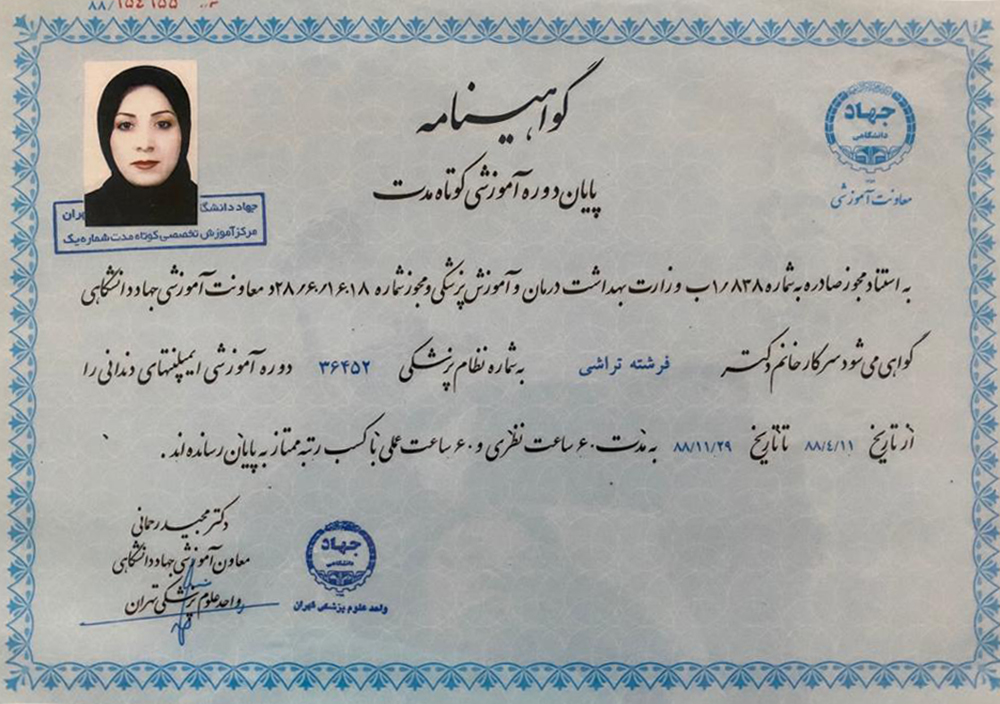 ۸۸/۱۵٤۱۵۵
گواهینامه
پایان دوره آموزشی کوتاه مدت
جهاد
دانشگاهی
معاونت آموزشی
جهاد دانشگا
مرکز آموزش تخصصی کوتاه مدت شماره یک
به استناد مجوز صادره به شماره ۱/۸۳۸ب وزارت بهداشت درمان و آموزش پزشکی و مجوز شماره ۲۸/۶/۱۶۰۱۸د معاونت آموزشی جهاد دانشگاهی
گواهی می شود سرکار خانم دکتر فرشته تراشی به شماره نظام پزشکی ۳۶۴۵۲ دوره آموزشی ایمپلنتهای دندانی را
از تاریخ ۸۸/٤/۱۱ تا تاریخ ۸۸/۱۱/۲۹ به مدت ۶۰ ساعت نظری و ۶۰ ساعت عملی با کسب رتبه ممتاز به پایان رسانده اند.
دکتر مجید رحمانی
معاون آموزشی جهاد دانشگاهی
واحد علوم پزشکی تهران
جهاد
دانشگاهی
واحد علوم پزشکی تهران